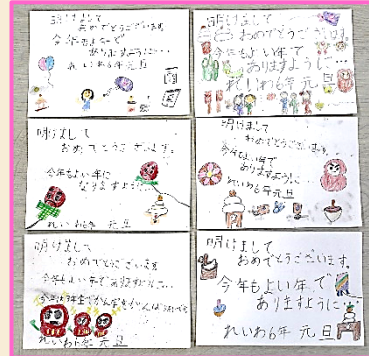 明けまして
おめでとうございます
今年もよい年で
ありますように…
れいわ6年 元旦
明けまして
おめでとうございます。
今年もよい年で
ありますように…
れいわ6年 元旦
明けまして
おめでとうございます。
今年もよい年に
なりますように
れいわ6年 元旦
明けまして
おめでとうございます。
今年もよい年で
ありますように
れいわ6年 元旦
明けまして
おめでとうございます
今年もよい年で
れいわ6年 元旦
明けまして
おめでとうございます。
今年もよい年で
ありますように
れいわ6年 元旦